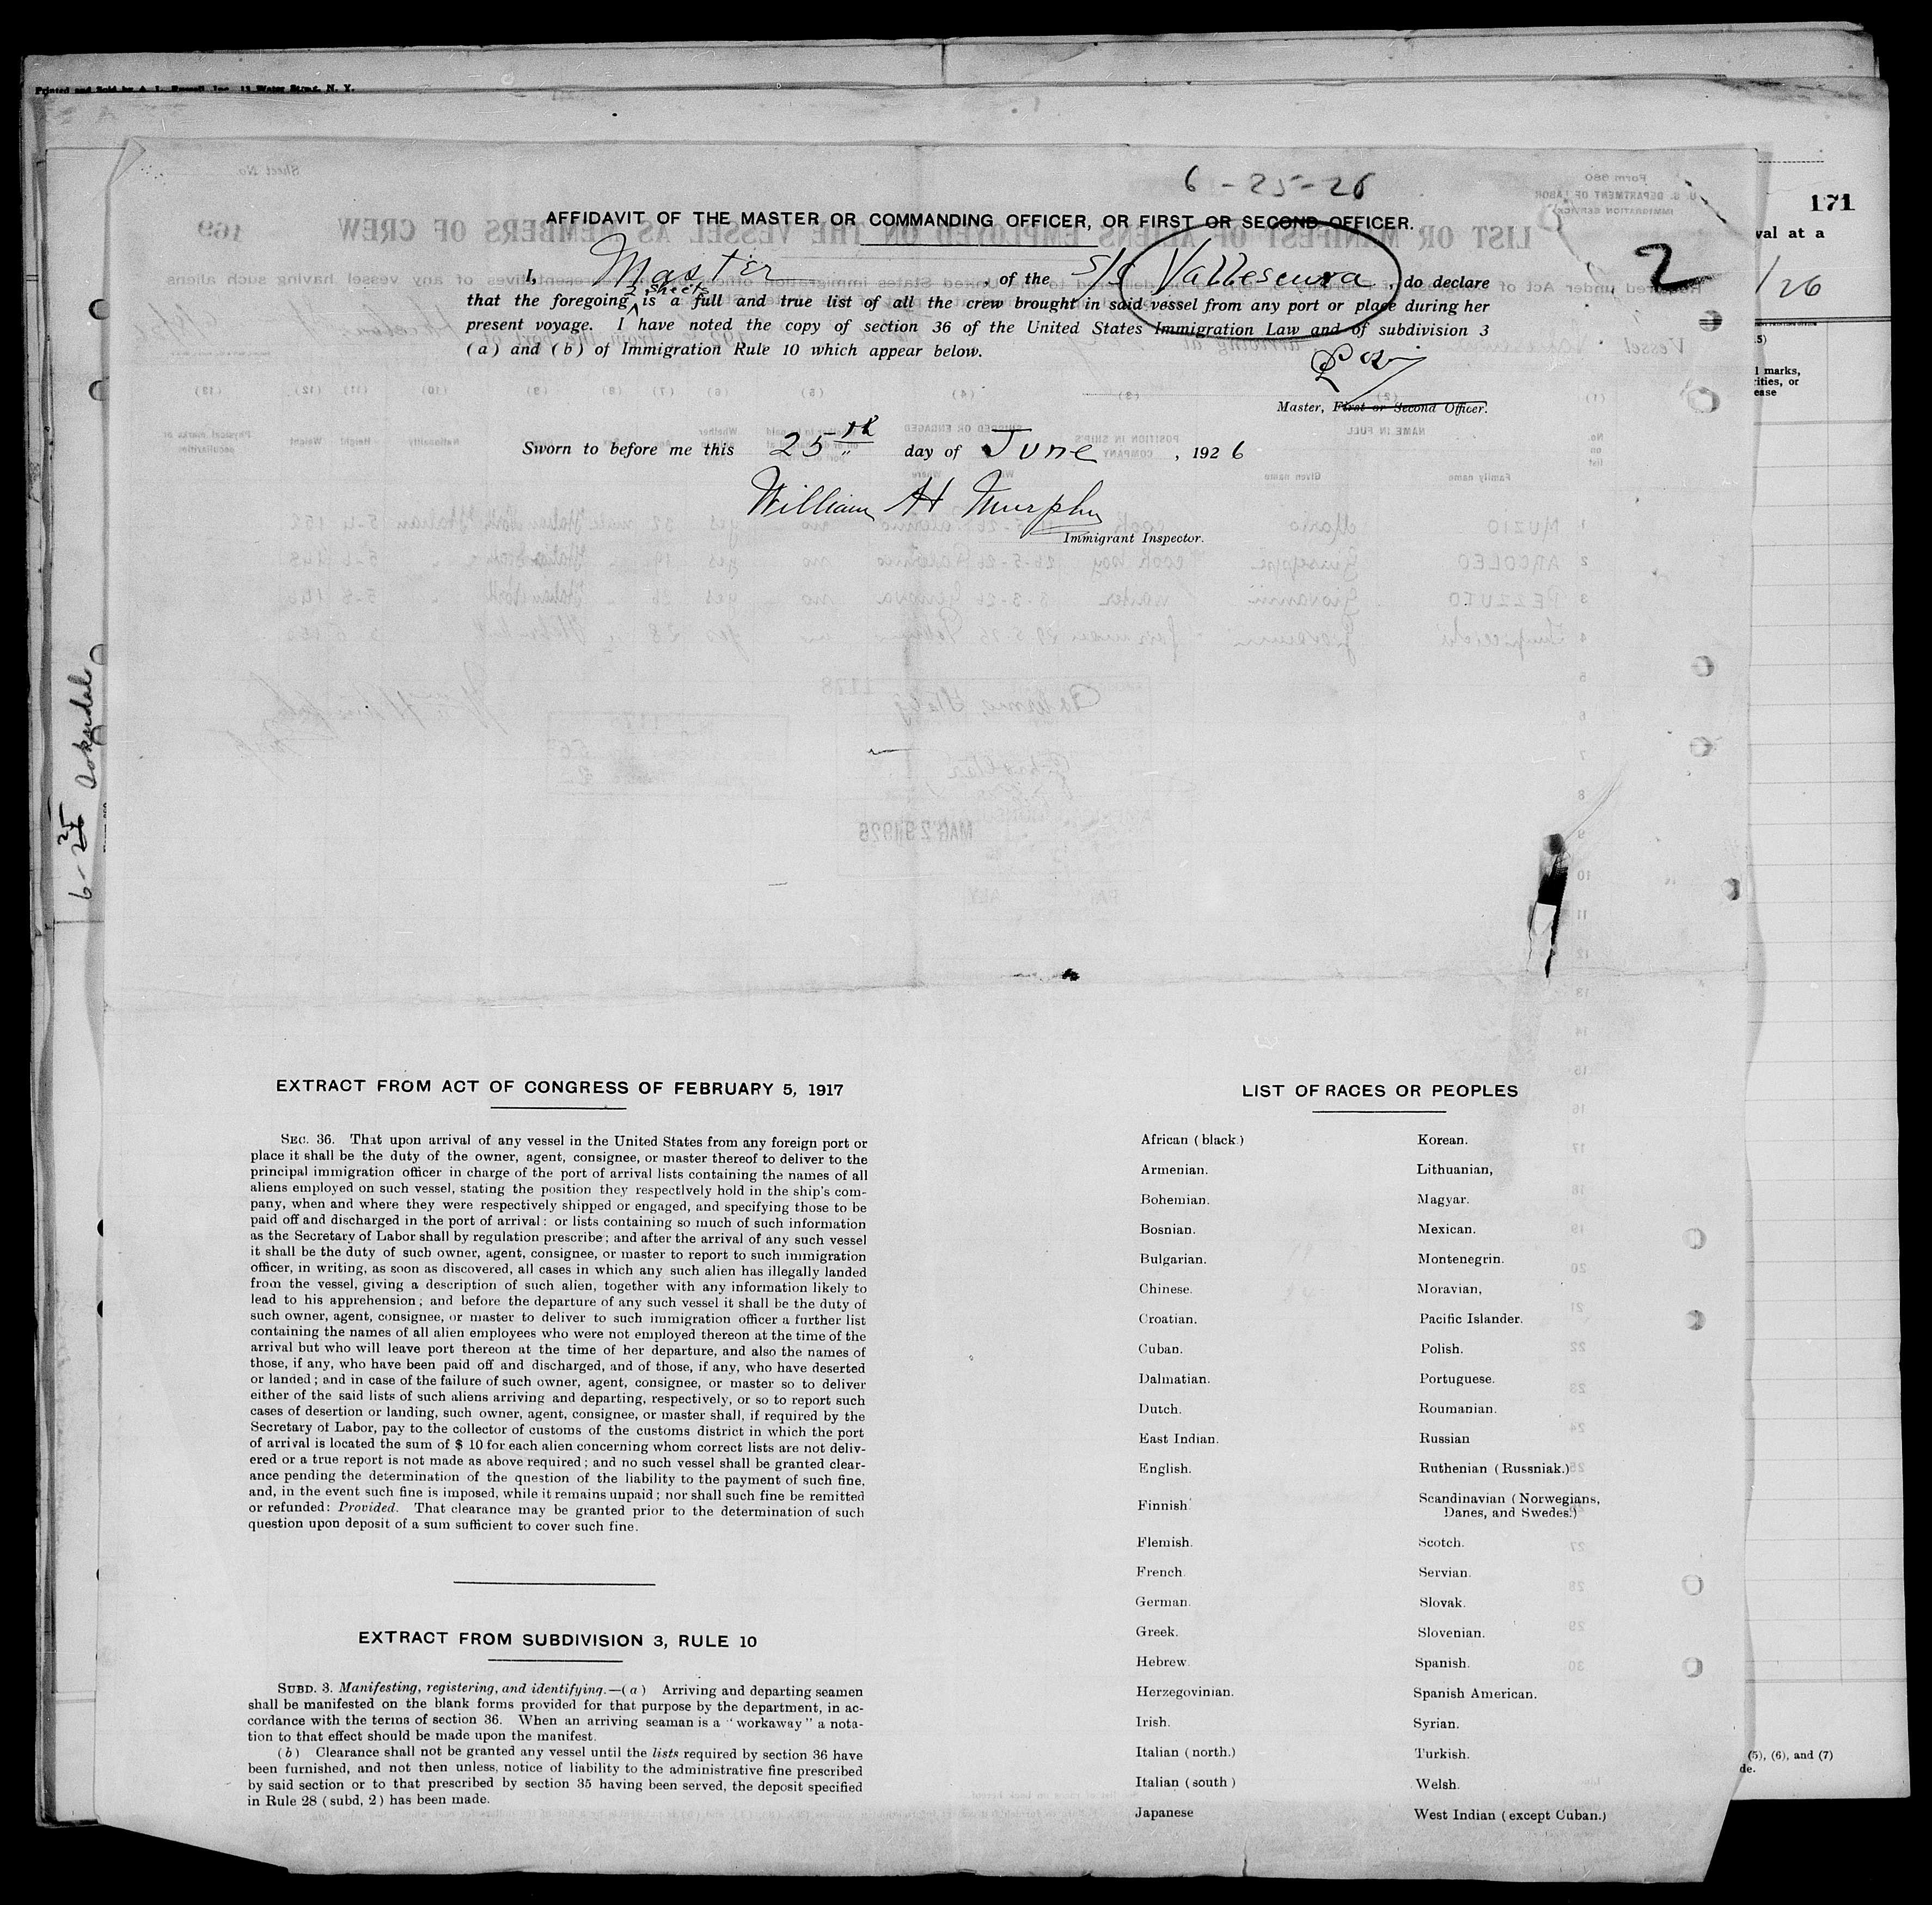 Printed and Sold by A. L. Russell, Inc. 12 Water Street, N. Y.
6-25-26
AFFIDAVIT OF THE MASTER OR COMMANDING OFFICER, OR FIRST OR SECOND OFFICER.
171
val at a
2
I, Master, of the S/S Vallescura, do declare
2 sheets
that the foregoing is a full and true list of all the crew brought in said vessel from any port or place during her
present voyage. I have noted the copy of section 36 of the United States Immigration Law and of subdivision 3
(a) and (b) of Immigration Rule 10 which appear below.
/26
l marks,
cities, or
ease
Master, First or Second Officer.
Sworn to before me this 25th day of June, 1926
William H Murphy
Immigrant Inspector.
EXTRACT FROM ACT OF CONGRESS OF FEBRUARY 5, 1917
SEC. 36. That upon arrival of any vessel in the United States from any foreign port or
place it shall be the duty of the owner, agent, consignee, or master thereof to deliver to the
principal immigration officer in charge of the port of arrival lists containing the names of all
aliens employed on such vessel, stating the position they respectively hold in the ship's com-
pany, when and where they were respectively shipped or engaged, and specifying those to be
paid off and discharged in the port of arrival: or lists containing so much of such information
as the Secretary of Labor shall by regulation prescribe; and after the arrival of any such vessel
it shall be the duty of such owner, agent, consignee, or master to report to such immigration
officer, in writing, as soon as discovered, all cases in which any such alien has illegally landed
from the vessel, giving a description of such alien, together with any information likely to
lead to his apprehension; and before the departure of any such vessel it shall be the duty of
such owner, agent, consignee, or master to deliver to such immigration officer a further list
containing the names of all alien employees who were not employed thereon at the time of the
arrival but who will leave port thereon at the time of her departure, and also the names of
those, if any, who have been paid off and discharged, and of those, if any, who have deserted
or landed; and in case of the failure of such owner, agent, consignee, or master so to deliver
either of the said lists of such aliens arriving and departing, respectively, or so to report such
cases of desertion or landing, such owner, agent, consignee, or master shall, if required by the
Secretary of Labor, pay to the collector of customs of the customs district in which the port
of arrival is located the sum of $ 10 for each alien concerning whom correct lists are not deliv-
ered or a true report is not made as above required; and no such vessel shall be granted clear-
ance pending the determination of the question of the liability to the payment of such fine,
and, in the event such fine is imposed, while it remains unpaid; nor shall such fine be remitted
or refunded: Provided. That clearance may be granted prior to the determination of such
question upon deposit of a sum sufficient to cover such fine.
EXTRACT FROM SUBDIVISION 3, RULE 10
SUBD. 3. Manifesting, registering, and identifying.—(a) Arriving and departing seamen
shall be manifested on the blank forms provided for that purpose by the department, in ac-
cordance with the terms of section 36. When an arriving seaman is a "workaway" a nota-
tion to that effect should be made upon the manifest.
(b) Clearance shall not be granted any vessel until the lists required by section 36 have
been furnished, and not then unless, notice of liability to the administrative fine prescribed
by said section or to that prescribed by section 35 having been served, the deposit specified
in Rule 28 (subd, 2) has been made.
LIST OF RACES OR PEOPLES
African (black.)
Armenian.
Bohemian.
Bosnian.
Bulgarian.
Chinese.
Croatian.
Cuban.
Dalmatian.
Dutch.
East Indian.
English.
Finnish
Flemish.
French.
German.
Greek.
Hebrew.
Herzegovinian.
Irish.
Italian (north.)
Italian (south)
Japanese
Korean.
Lithuanian,
Magyar.
Mexican.
Montenegrin.
Moravian,
Pacific Islander.
Polish.
Portuguese.
Roumanian.
Russian
Ruthenian (Russniak.)
Scandinavian (Norwegians,
Danes, and Swedes.)
Scotch.
Servian.
Slovak.
Slovenian.
Spanish.
Spanish American.
Syrian.
Turkish.
Welsh.
West Indian (except Cuban.)
(5), (6), and (7)
de.